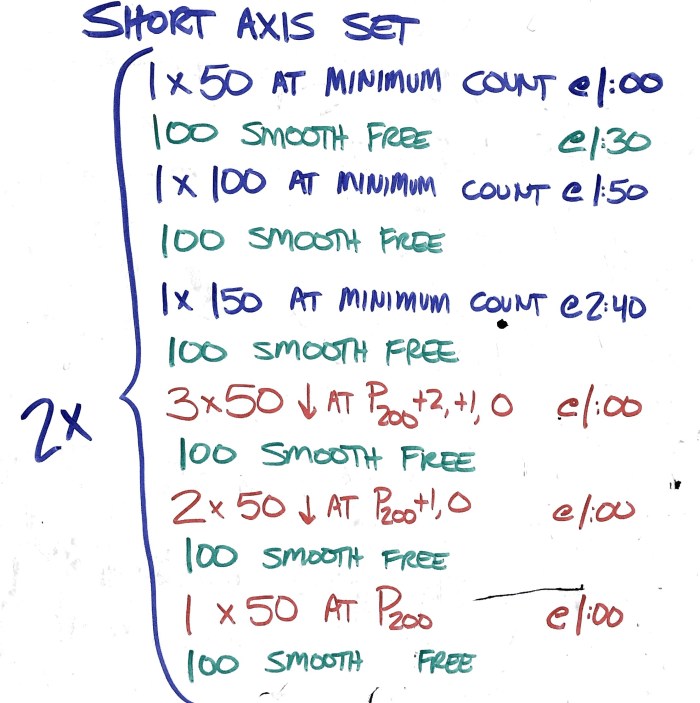 SHORT AXIS SET
1 x 50 AT MINIMUM COUNT @ 1:00
100 SMOOTH FREE @ 1:30
1 x 100 AT MINIMUM COUNT @ 1:50
100 SMOOTH FREE
1 x 150 AT MINIMUM COUNT @ 2:40
100 SMOOTH FREE
3 x 50 ↓ AT P200+2,+1,0 @ 1:00
2x
100 SMOOTH FREE
2 x 50 ↓ AT P200+1,0 @ 1:00
100 SMOOTH FREE
1 x 50 AT P200 @ 1:00
100 SMOOTH FREE